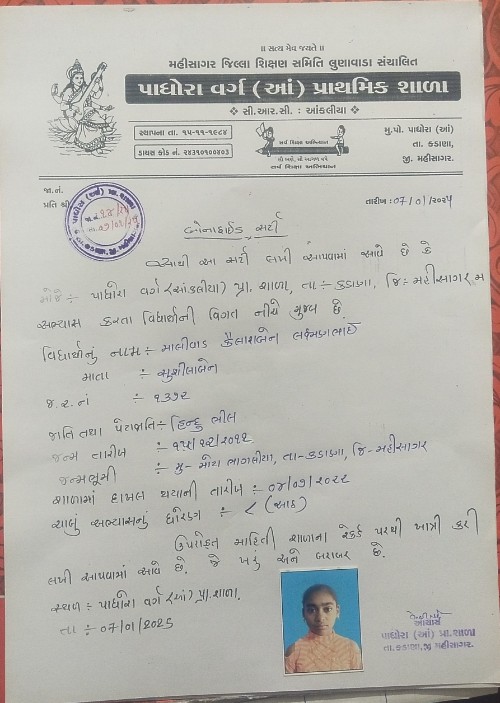 ॥ સત્ય મેવ જયતે ॥
મહીસાગર જિલ્લા શિક્ષણ સમિતિ લુણાવાડા સંચાલિત
પાધોરા વર્ગ (આં) પ્રાથમિક શાળા
❖ સી.આર.સી. : આંકલીયા ❖
સ્થાપના તા. ૧૫-૧૧-૧૯૮૪
ડાયસ કોડ નં. ૨૪૩૧૦૧૦૦૪૦૩
સર્વ શિક્ષા અભિયાન
સર્વ શિક્ષા અભિયાન
મુ.પો. પાધોરા (આં)
તા. કડાણા,
જી. મહીસાગર.
જા.નં.
પ્રતિ શ્રી
તારીખ : 07/01/૨૦૨૫
બોનાફાઈડ સર્ટી
આથી આ સર્ટી લખી આપવામાં આવે છે કે
મોજે :- પાધોરા વર્ગ (આંકલીયા) પ્રા. શાળા, તા :- કડાણા, જિ :- મહીસાગર મા
અભ્યાસ કરતા વિદ્યાર્થીની વિગત નીચે મુજબ છે.
વિદ્યાર્થીનું નામ :- માલીવાડ કૈલાસબેન લક્ષ્મણભાઈ
માતા :- સુશીલાબેન
જ.ર.નં :- ૧૩૭૨
જાતિ તથા પેટાજાતિ :- હિન્દુ ભીલ
જન્મ તારીખ :- ૧૫/૧૨/૨૦૧૨
જન્મભૂમી :- મુ - મોટા ભાગલીયા, તા - કડાણા, જિ - મહીસાગર
શાળામાં દાખલ થયાની તારીખ :- ૦૪/૦૭/૨૦૨૨
ચાલું અભ્યાસનું ધોરણ :- ૮ (આઠ)
ઉપરોક્ત માહિતી શાળાના રેકર્ડ પરથી ખાત્રી કરી
લખી આપવામાં આવે છે. જે ખરું અને બરાબર છે.
સ્થળ :- પાધોરા વર્ગ (આં) પ્રા. શાળા.
તા :- 07/01/૨૦૨૬
આચાર્ય
પાધોરા (આં) પ્રા. શાળા
તા. કડાણા, જી મહીસાગર.